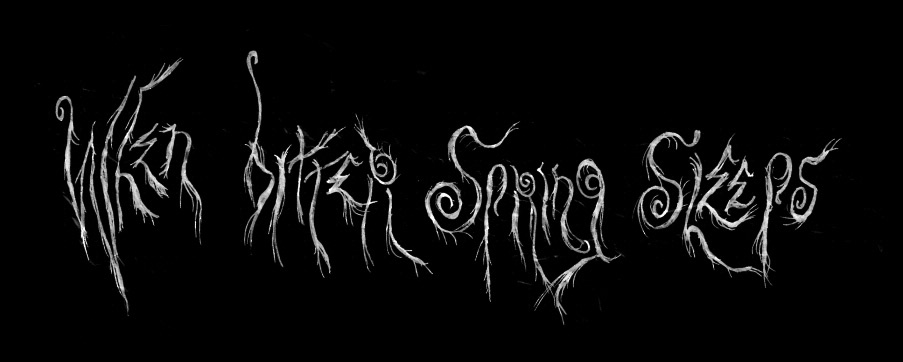 When bitter Spring Sleeps